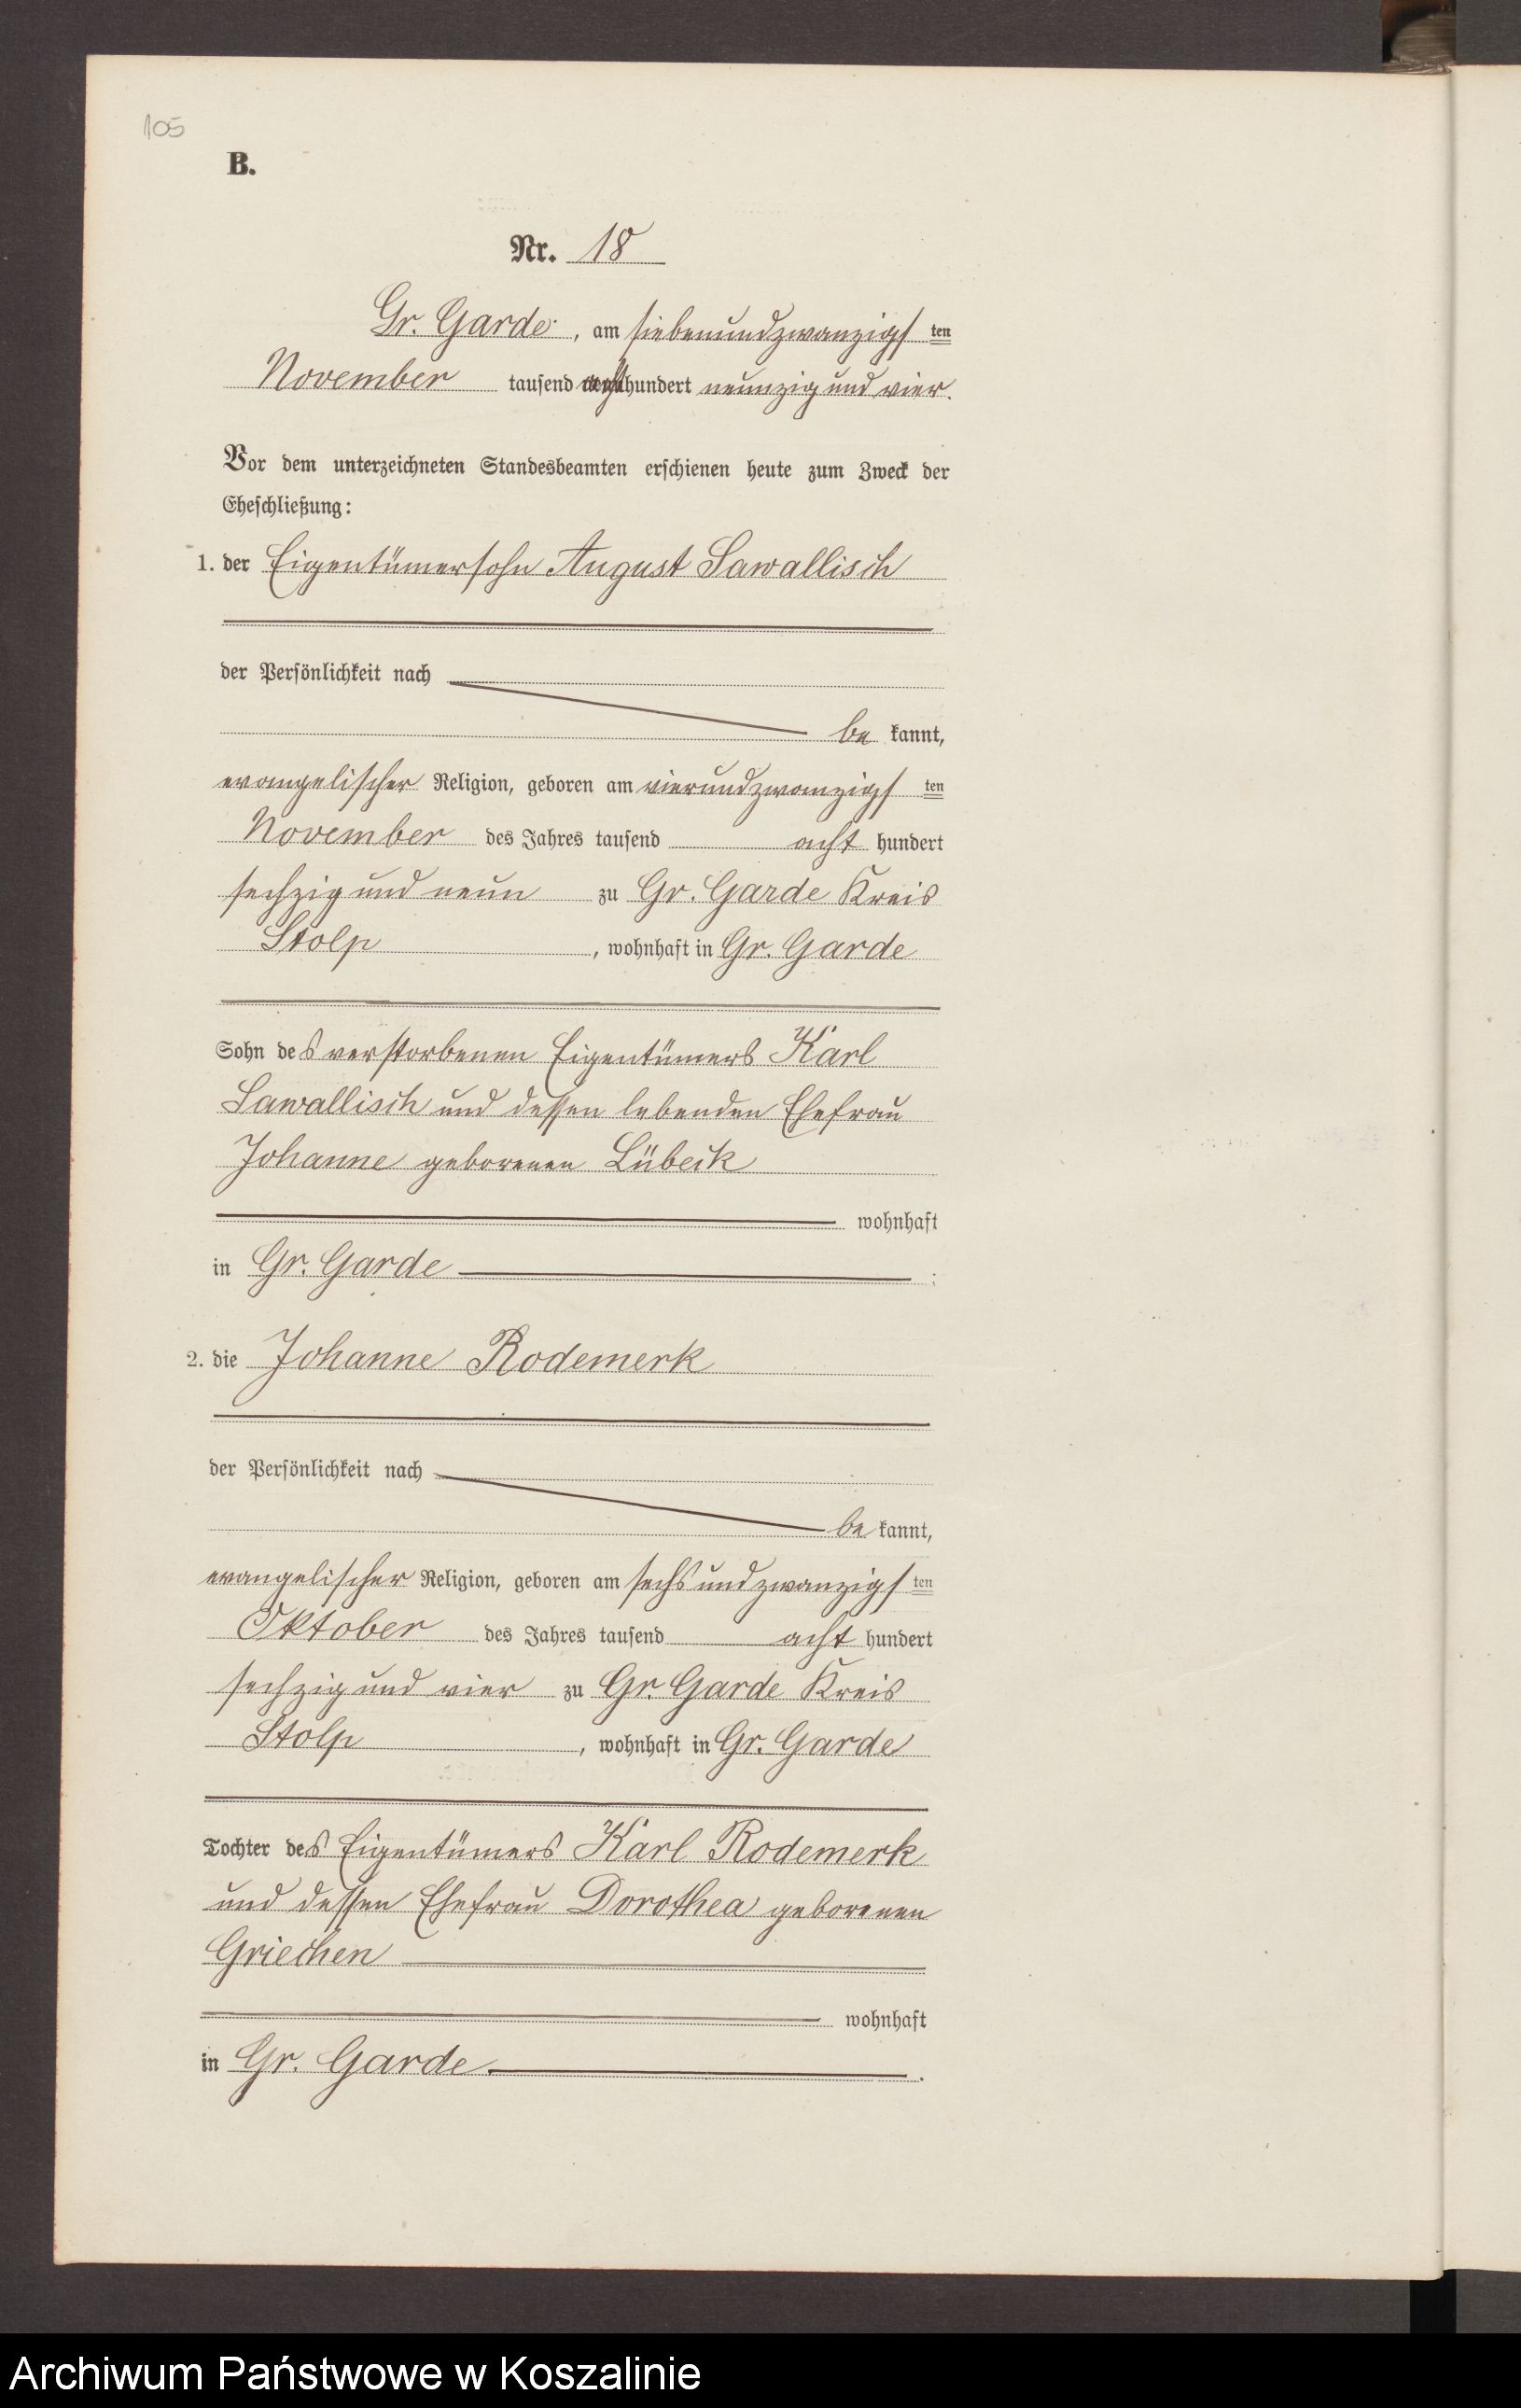 105
B.
Nr. 18
Gr. Garde, am siebenundzwanzigsten
November tausend achthundert neunzig und vier.
Vor dem unterzeichneten Standesbeamten erschienen heute zum Zweck der
Eheschließung:
1. der Eigentümersohn August Sawallisch
der Persönlichkeit nach
be kannt,
evangelischer Religion, geboren am vierundzwanzigsten
November des Jahres tausend acht hundert
sechzig und neun zu Gr. Garde Kreis
Stolp, wohnhaft in Gr. Garde
Sohn des verstorbenen Eigentümers Karl
Sawallisch und dessen lebenden Ehefrau
Johanne geborenen Lübeck
wohnhaft
in Gr. Garde ;
2. die Johanne Rodemerk
der Persönlichkeit nach
be kannt,
evangelischer Religion, geboren am sechsundzwanzigsten
Oktober des Jahres tausend acht hundert
sechzig und vier zu Gr. Garde Kreis
Stolp, wohnhaft in Gr. Garde
Tochter des Eigentümers Karl Rodemerk
und dessen Ehefrau Dorothea geborenen
Griechen
wohnhaft
in Gr. Garde.
Archiwum Państwowe w Koszalinie